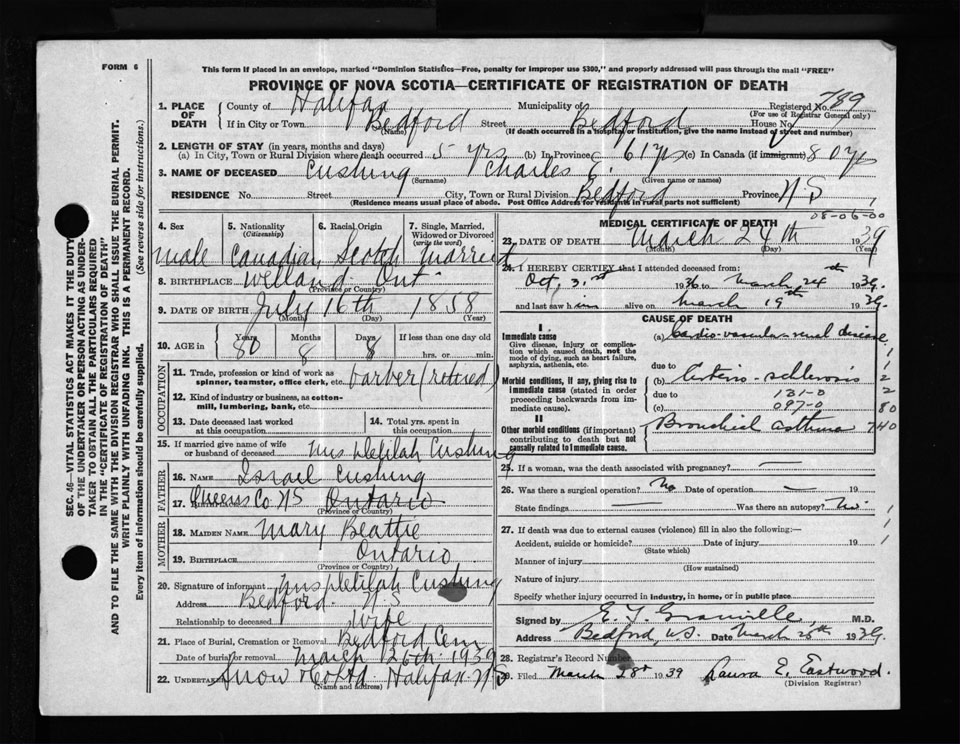 FORM 6
This form if placed in an envelope, marked "Dominion Statistics—Free, penalty for improper use $300," and properly addressed will pass through the mail "FREE"
PROVINCE OF NOVA SCOTIA—CERTIFICATE OF REGISTRATION OF DEATH
1. PLACE OF DEATH
County of Halifax Municipality of Registered No. 789
(For use of Registrar General only)
If in City or Town Bedford Street Bedford House No.
(Name) (If death occurred in a hospital or institution, give the name instead of street and number)
2. LENGTH OF STAY (in years, months and days)
(a) In City, Town or Rural Division where death occurred 5 yrs (b) In Province 61 yrs (c) In Canada (if immigrant) 80 yrs
3. NAME OF DECEASED Cushing Charles E.
(Surname) (Given name or names)
RESIDENCE No. Street City, Town or Rural Division Bedford Province N.S
(Residence means usual place of abode. Post Office Address for residents in rural parts not sufficient)
1
08-06-00
4. Sex 5. Nationality (Citizenship) 6. Racial Origin 7. Single, Married, Widowed or Divorced (write the word)
male Canadian Scotch married
8. BIRTHPLACE Welland Ont
(Province or Country)
9. DATE OF BIRTH July 16th 1858
(Month) (Day) (Year)
10. AGE in Years Months Days If less than one day old
80 8 8 hrs. or min.
OCCUPATION
11. Trade, profession or kind of work as spinner, teamster, office clerk, etc. barber (retired)
12. Kind of industry or business, as cotton-mill, lumbering, bank, etc.
13. Date deceased last worked at this occupation 14. Total yrs. spent in this occupation
15. If married give name of wife or husband of deceased Mrs Delilah Cushing
FATHER
16. NAME Israel Cushing
17. BIRTHPLACE Queens Co NS Ontario
(Province or Country)
MOTHER
18. MAIDEN NAME Mary Beattie
19. BIRTHPLACE Ontario
(Province or Country)
20. Signature of informant Mrs Delilah Cushing
Address Bedford N.S
Relationship to deceased wife
21. Place of Burial, Cremation or Removal Bedford Cem
Date of burial or removal March 26th 1939
22. UNDERTAKER Snow & Co Ltd Halifax N.S
(Name and address)
MEDICAL CERTIFICATE OF DEATH
23. DATE OF DEATH March 24th 1939
(Month) (Day) (Year)
24. I HEREBY CERTIFY that I attended deceased from:
Oct, 31st 1936 to March 24th 1939.
and last saw him alive on March 19th 1939.
CAUSE OF DEATH
I
Immediate cause
Give disease, injury or complication which caused death, not the mode of dying, such as heart failure, asphyxia, asthenia, etc.
(a) Cardio-vascular-renal disease 1
due to 1
Morbid conditions, if any, giving rise to immediate cause (stated in order proceeding backwards from immediate cause).
(b) Arterio-sclerosis 2
due to 131-0 2
(c) 097-0 80
II
Other morbid conditions (if important) contributing to death but not causally related to immediate cause.
Bronchial asthma 740
25. If a woman, was the death associated with pregnancy? —
26. Was there a surgical operation? No Date of operation — 19
State findings — Was there an autopsy? No 1
27. If death was due to external causes (violence) fill in also the following:— 1
Accident, suicide or homicide? Date of injury 19 1
(State which)
Manner of injury
(How sustained)
Nature of injury
Specify whether injury occurred in industry, in home, or in public place
Signed by E. T. Granville, M.D.
Address Bedford, N.S. Date March 25th 1939.
28. Registrar's Record Number
29. Filed March 28th 1939 Laura E. Eastwood.
(Division Registrar)
SEC. 46—VITAL STATISTICS ACT MAKES IT THE DUTY OF THE UNDERTAKER OR PERSON ACTING AS UNDERTAKER TO OBTAIN ALL THE PARTICULARS REQUIRED IN THE "CERTIFICATE OF REGISTRATION OF DEATH"
AND TO FILE THE SAME WITH THE DIVISION REGISTRAR WHO SHALL ISSUE THE BURIAL PERMIT.
WRITE PLAINLY WITH UNFADING INK. THIS IS A PERMANENT RECORD.
Every item of information should be carefully supplied. (See reverse side for instructions.)